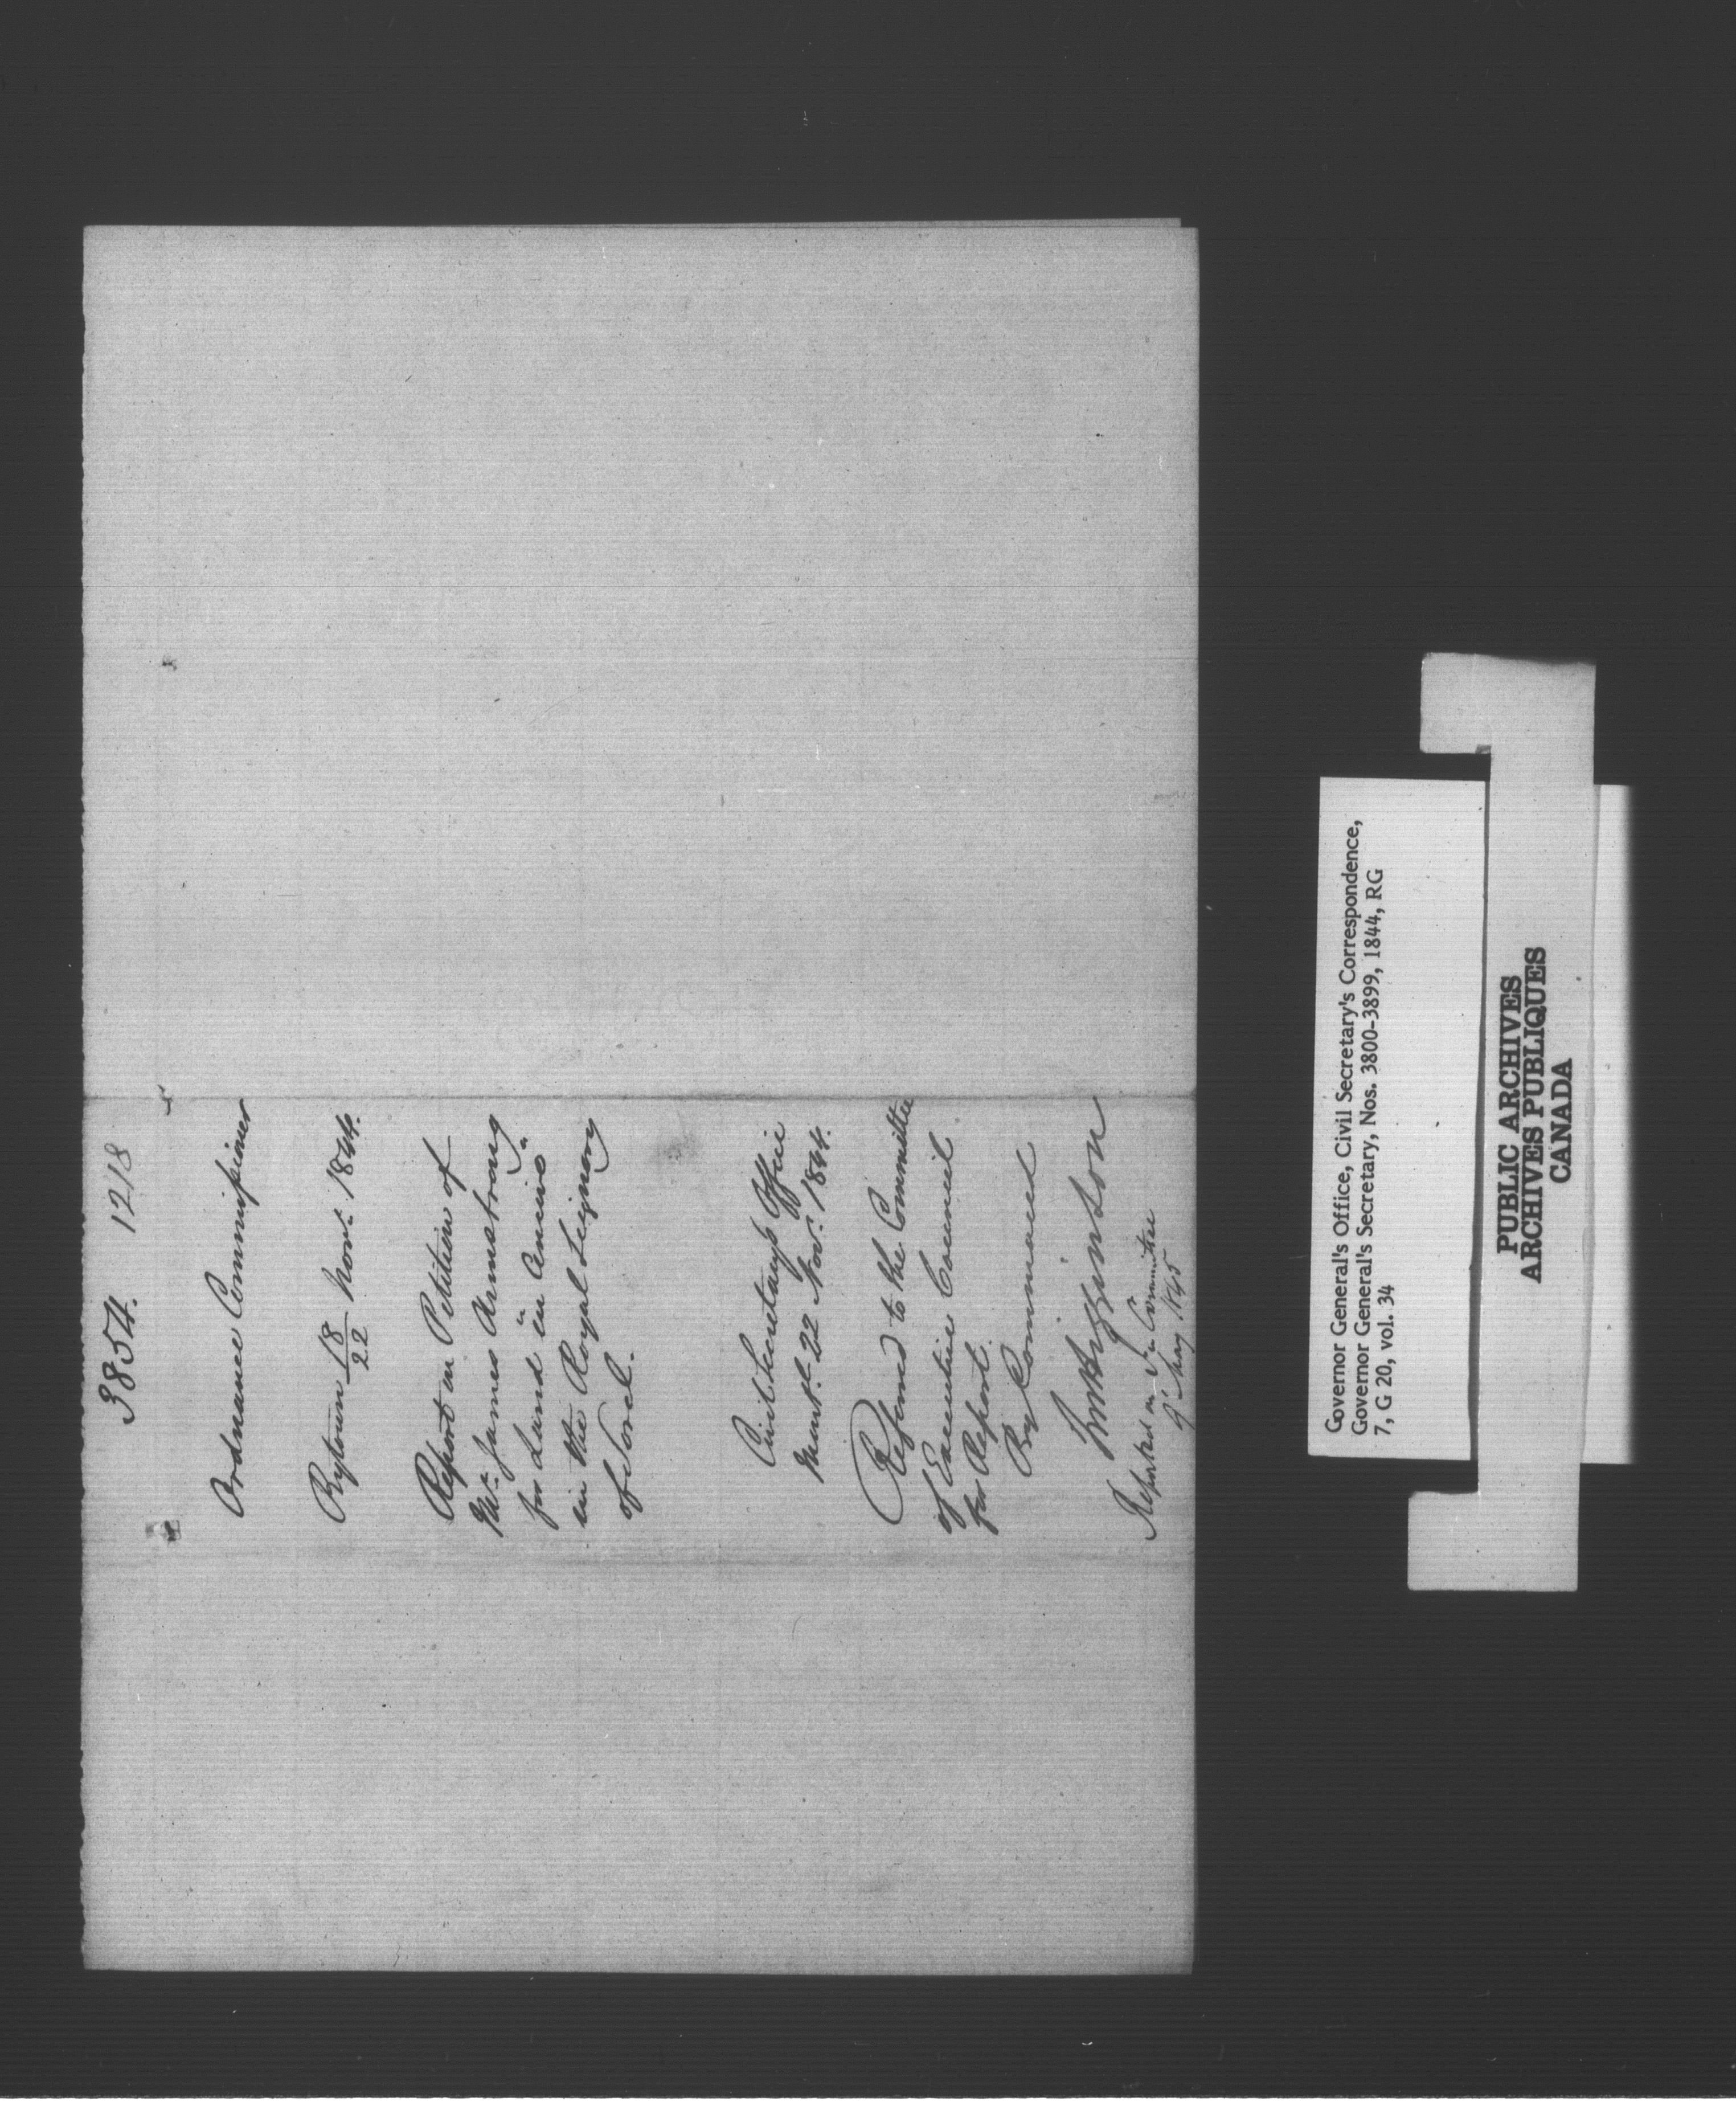 3854. 1218
Ordnance Commissioner
Bytown 18/22 Novr. 1844.
Report on Petition of
Mr. James Armstrong
for Land "in Cencive"
in the Royal Seigniory
of Sorel.
Civil Secretary's Office
Montl. 22 Novr. 1844.
Referred to the Committee
of Executive Council
for Report.
By Command
JM Higginson
Reported on in Committee
9 May 1845
Governor General's Office, Civil Secretary's Correspondence,
Governor General's Secretary, Nos. 3800-3899, 1844, RG
7, G 20, vol. 34
PUBLIC ARCHIVES
ARCHIVES PUBLIQUES
CANADA